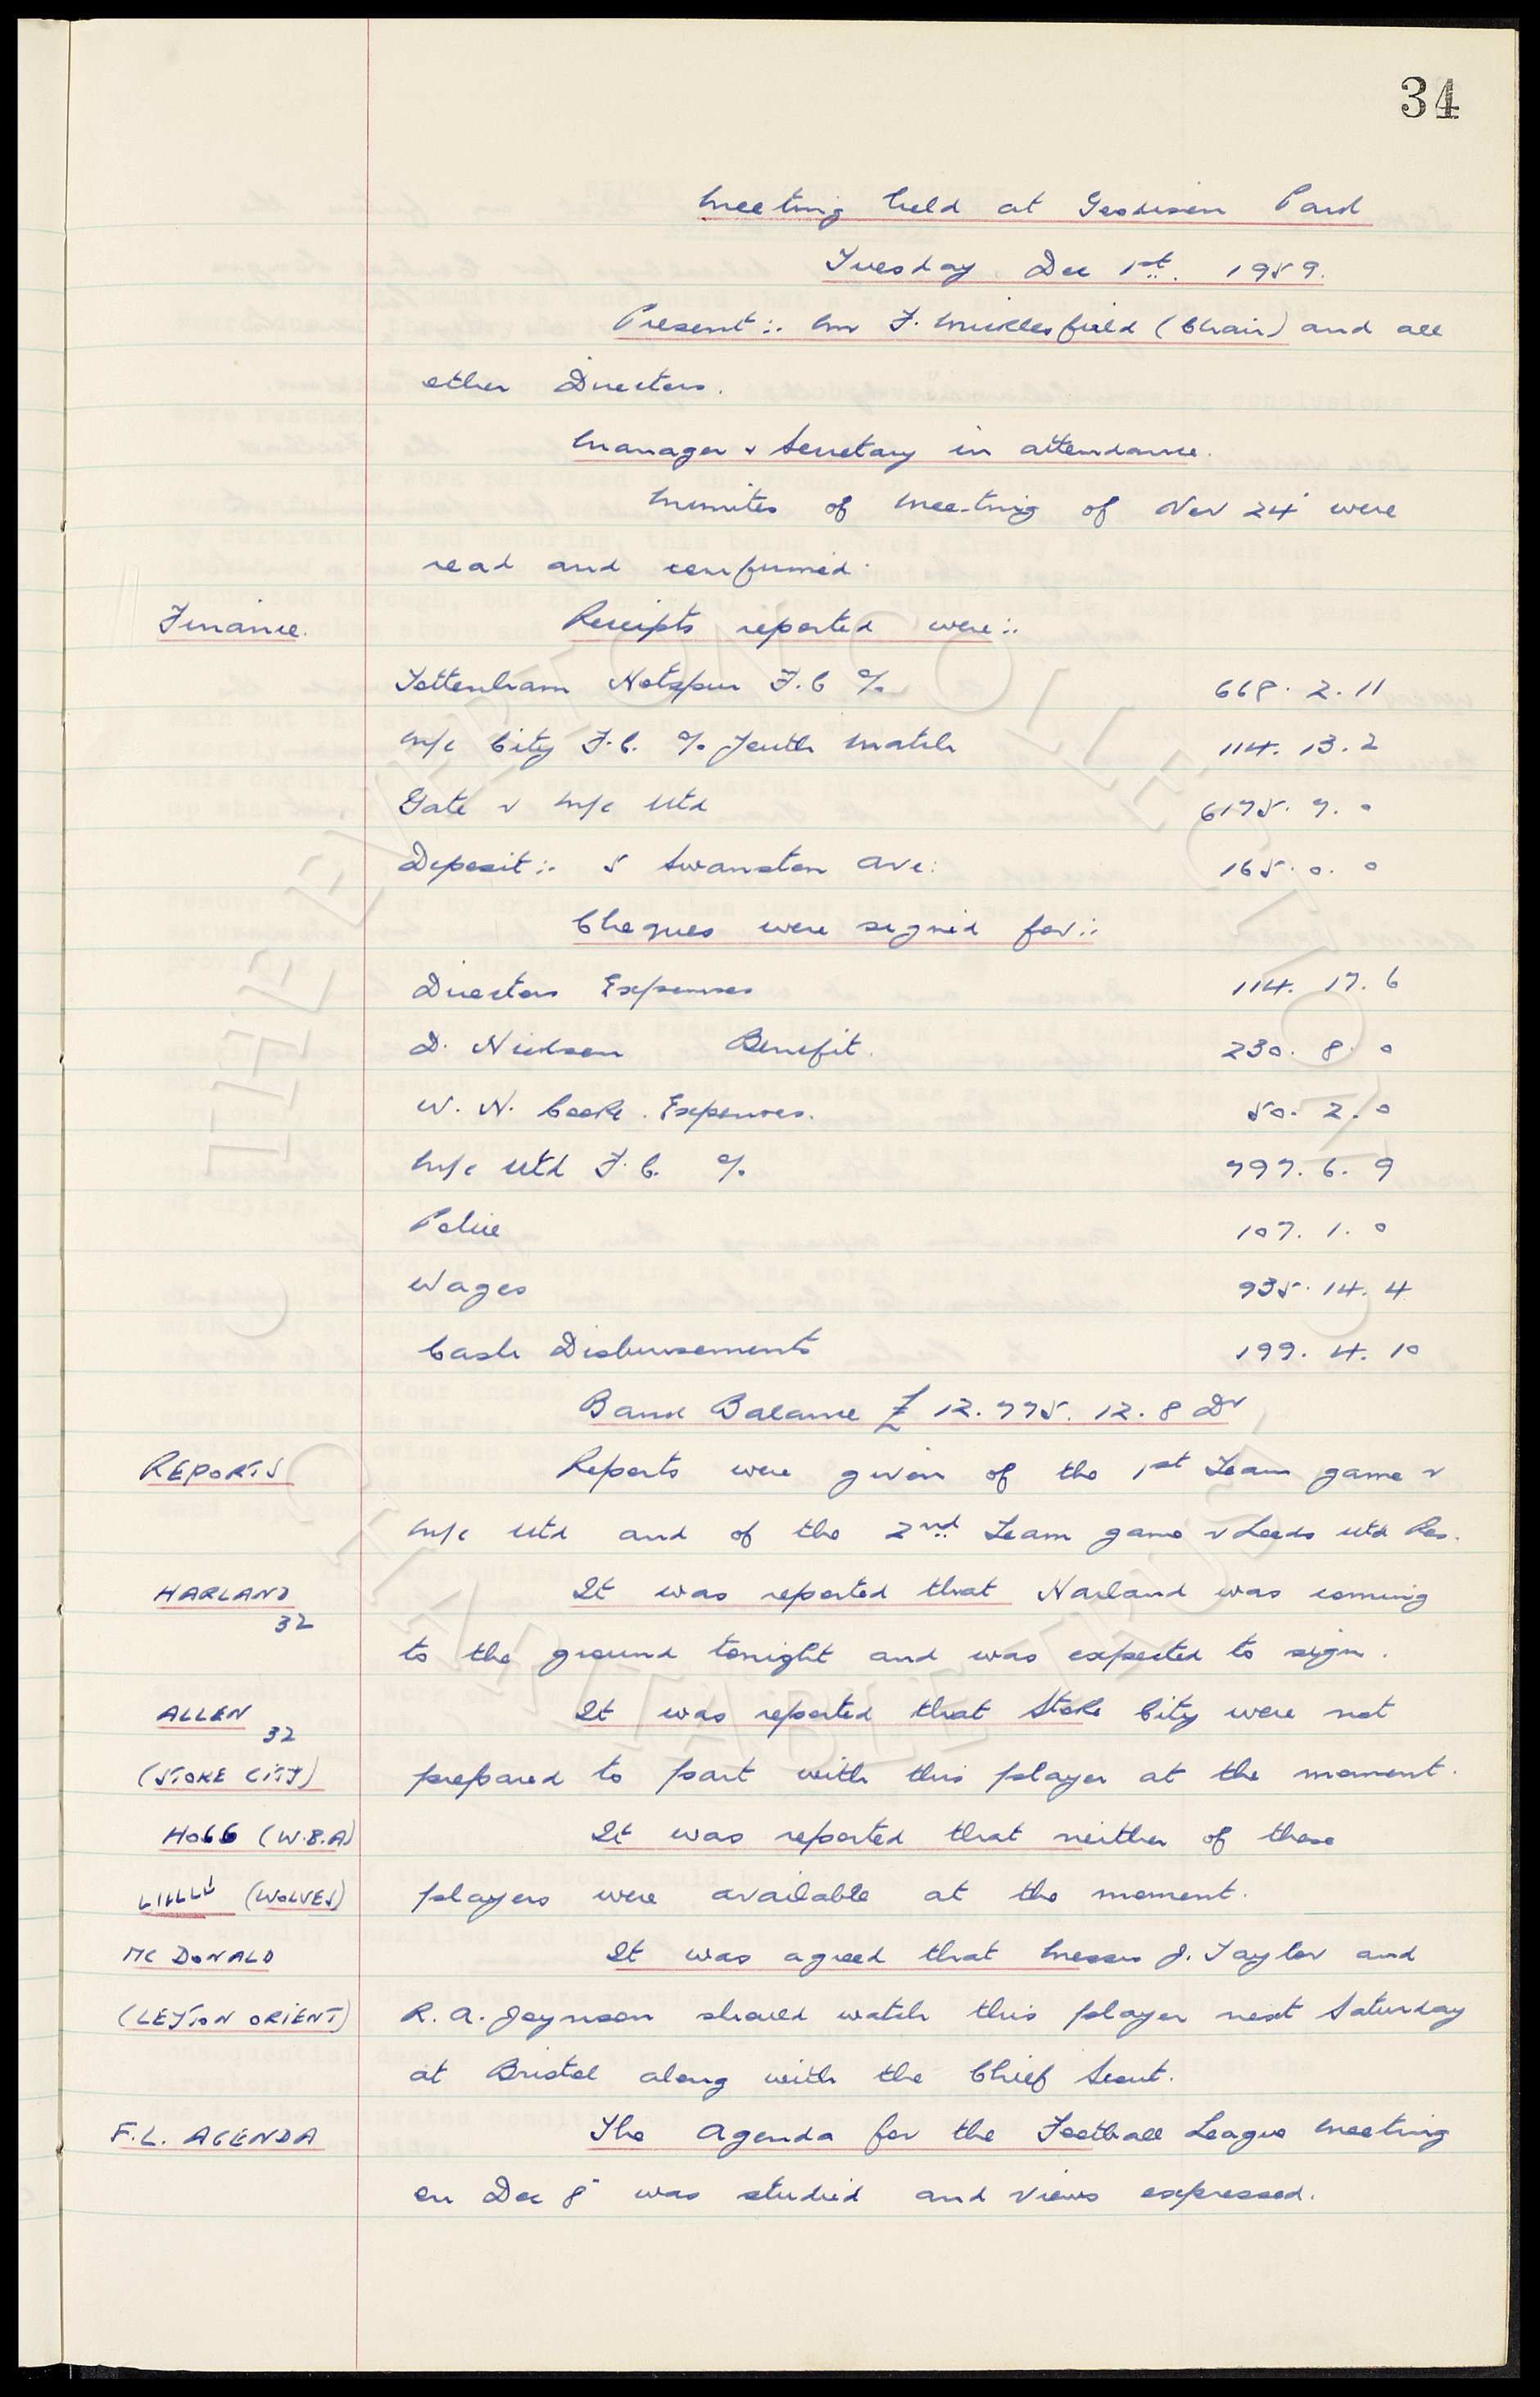 34
Meeting held at Goodison Park
Tuesday Dec 1st. 1959.
Present:- Mr F. Micklesfield (Chair) and all
other Directors.
Manager & Secretary in attendance.
Minutes of Meeting of Nov 24 were
read and confirmed.
Finance. Receipts reported were:-
Tottenham Hotspur F.C % 668. 2. 11
M/c City F.C. % Youth Match 114. 13. 2
Gate v M/c Utd 6175. 7. 0
Deposit:- 5 Swanston Ave: 165. 0. 0
Cheques were signed for:-
Directors Expenses 114. 17. 6
D. Hickson Benefit. 230. 8. 0
W. H. Cooke. Expenses. 50. 2. 0
M/c Utd F.C. % 797. 6. 9
Police 107. 1. 0
Wages 935. 14. 4
Cash Disbursements 199. 4. 10
Bank Balance £ 12.775. 12. 8 Dr
REPORTS Reports were given of the 1st Team game v
M/c Utd and of the 2nd Team game v Leeds Utd Res.
HARLAND It was reported that Harland was coming
32
to the ground tonight and was expected to sign.
ALLEN It was reported that Stoke City were not
32
(STOKE CITY) prepared to part with this player at the moment.
HOGG (W.B.A) It was reported that neither of these
LILLEY (WOLVES) players were available at the moment.
MC DONALD It was agreed that Messrs J. Taylor and
(LEYTON ORIENT) R. A. Joynson should watch this player next Saturday
at Bristol along with the Chief Scout.
F.L. AGENDA The Agenda for the Football League Meeting
on Dec 8 was studied and views expressed.
THE EVERTON COLLECTION
CHARITABLE TRUST